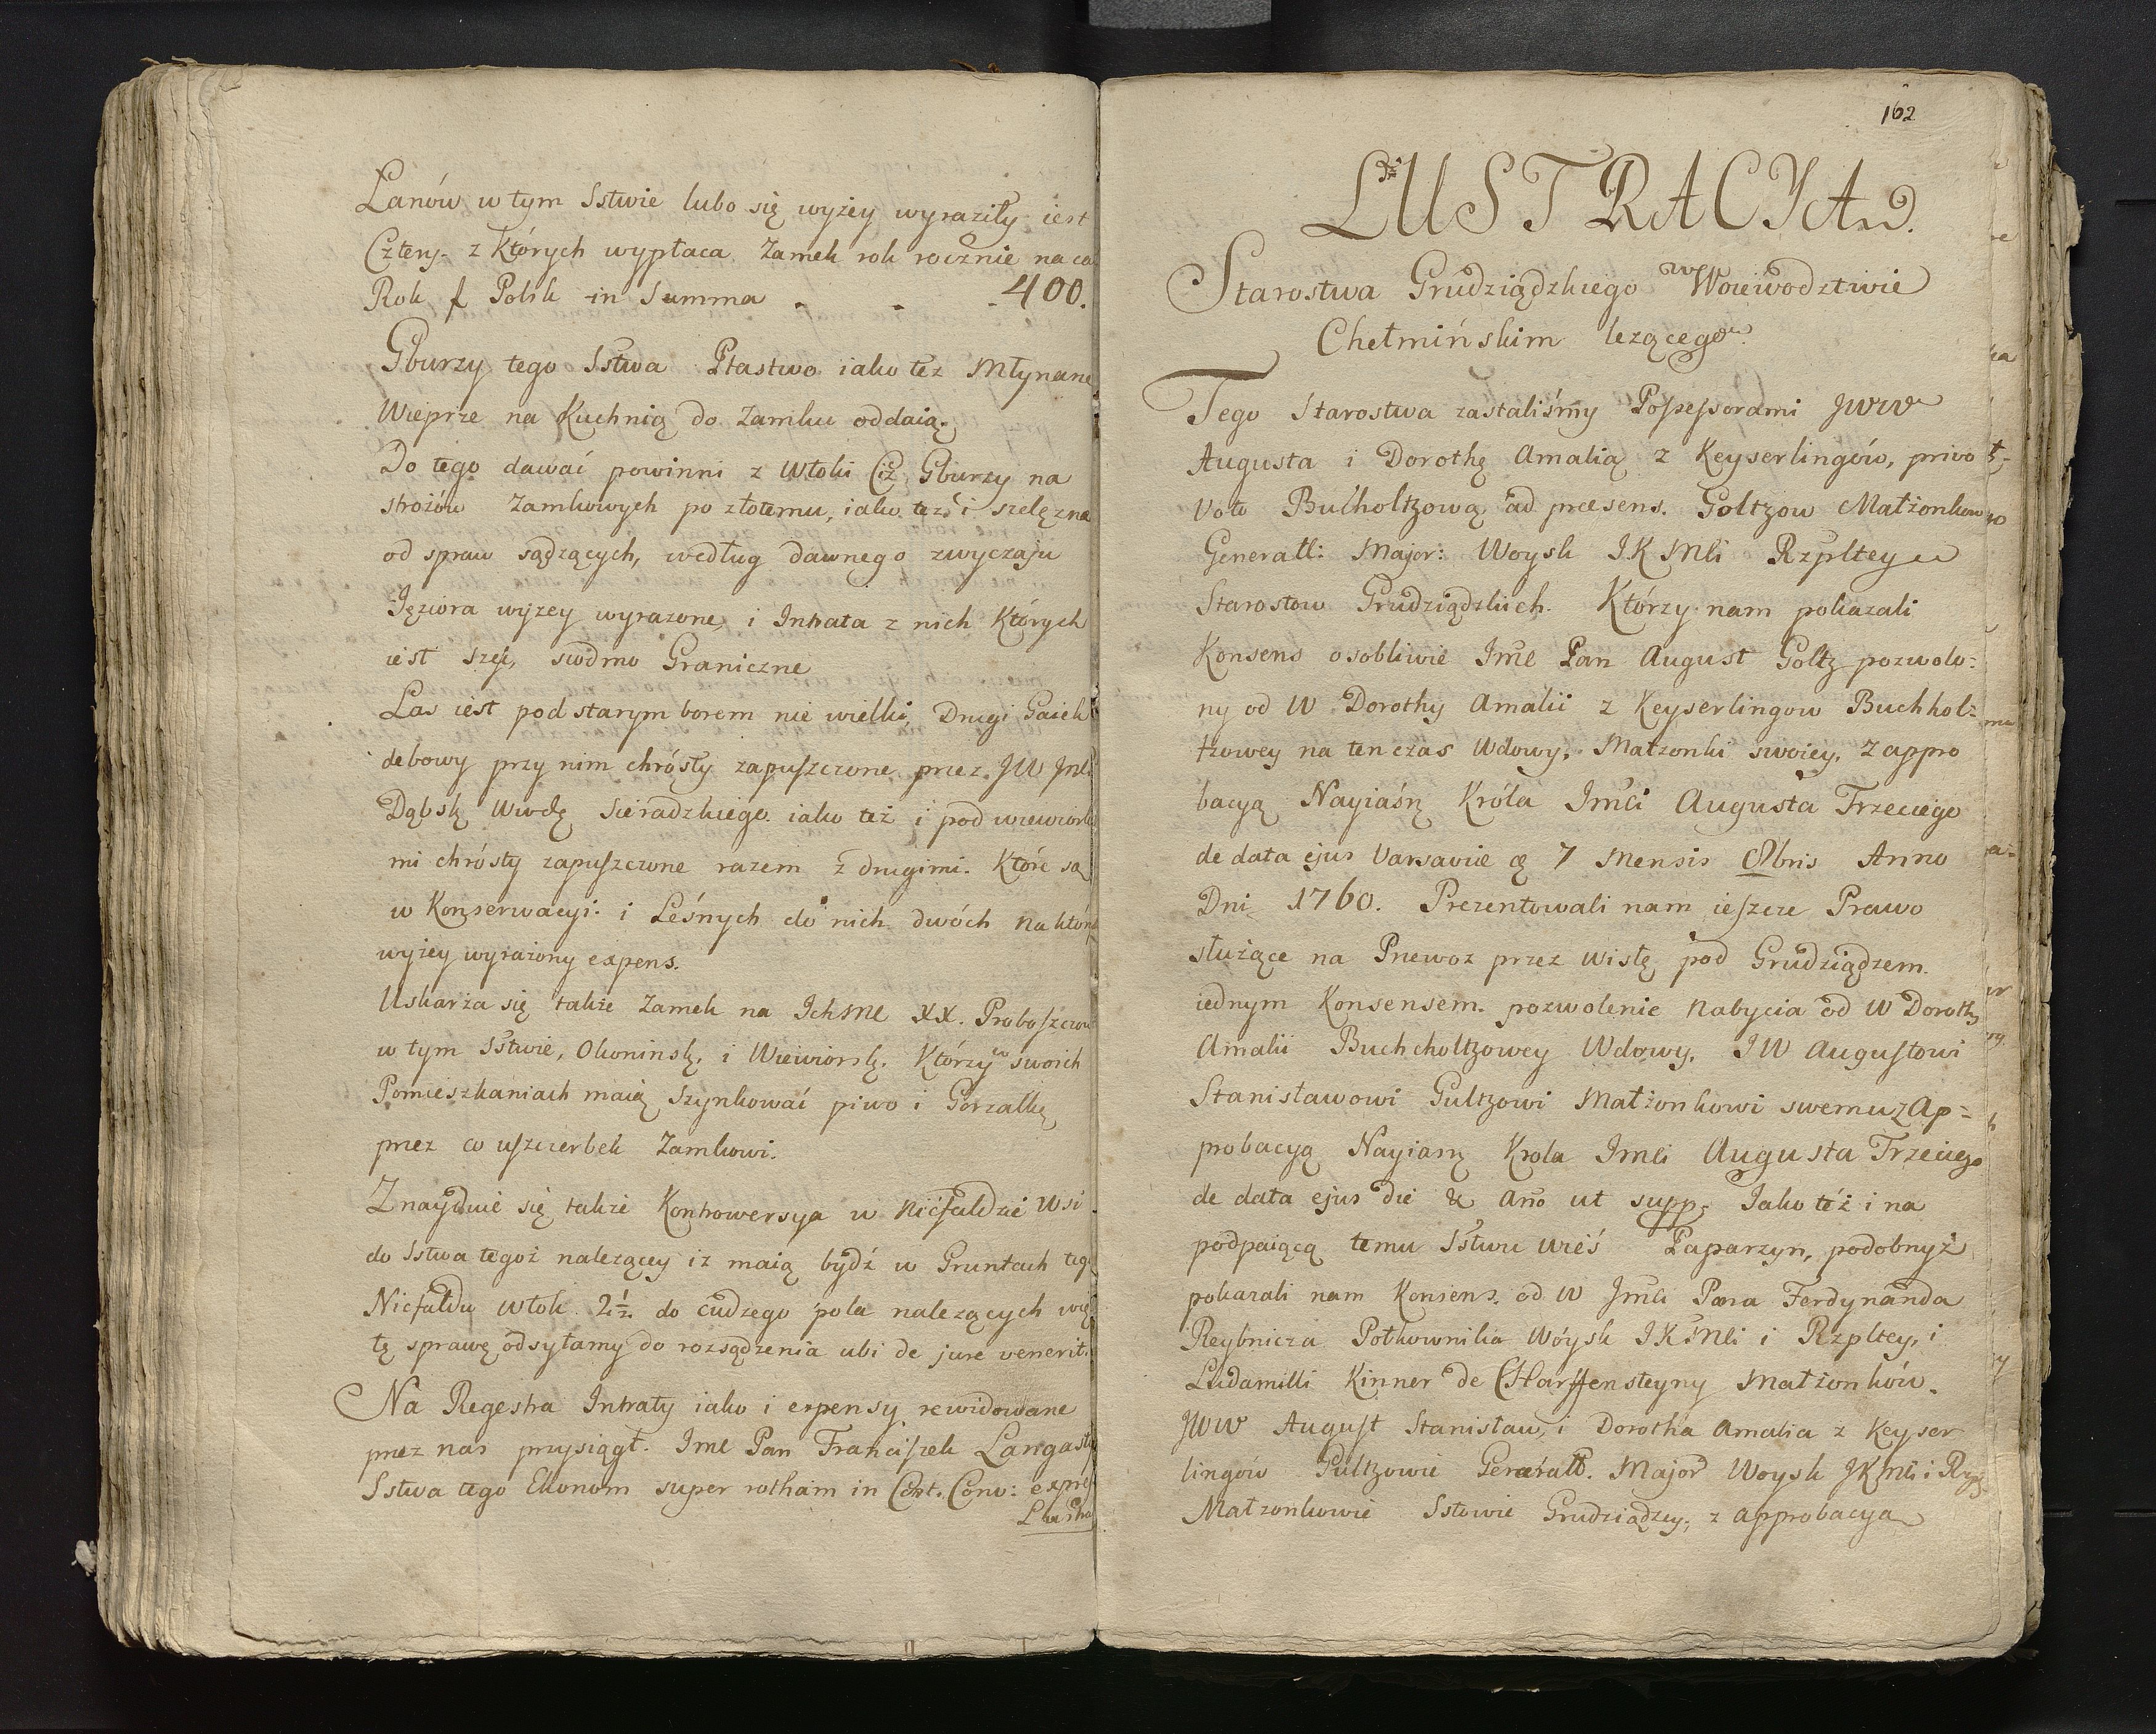 Lanów w tym Sstwie lubo się wyżey wyraziły iest
Cztery. z Których wypłaca Zamek rok rocznie na ca
Rok f Polsk in Summa - - - 400.
Gburzy tego Sstwa Ptastwo iako tez Młynarze
Wieprze na Kuchnią do Zamku oddaią.
Do tego dawać powinni z Włoki Ciż Gburzy na
strożów Zamkowych po złotemu, iako też i szelężne
od spraw sądzących, według dawnego zwyczaju
Jęziora wyzey wyrazone, i Intrata z nich Których
iest szeß, siodmo Graniczne
Las iest pod starym borem nie wielki, Drugi Gaiek
debowy przy nim chrósty zapuszczone przez JW Jmci
Dąbskę Wwdę Sieradzkiego iako też i pod wiewiorka
mi chrósty zapuszczone razem z drugimi. Które są
w Konserwacyi. i Leśnych do nich dwóch na któryc
wyżey wyrażony expens.
Uskarża się także Zamek na Ichmc XX. Proboszczow
w tym Sstwie, Okoninskę, i Wiewiorskę. Którzy w swoich
Pomieszkaniach maią Szynkować piwo i Gorzałkę
przez co uszczerbek Zamkowi.
Znayduie się także Kontrowersya w Nicfałdzie Wsi
do Sstwa tegoż nalezącey iz maią bydź w Gruntach teg
Nicfałdu Włok 2½. do cudzego pola nalezących więc
tę sprawę odsyłamy do rozsądzenia ubi de jure venerit.
Na Regestra Intraty iako i expensy rewidowane
przez nas przysiągł. Imc Pan Franciszek Langast
Sstwa tego Ekonom super rotham in Cont. Conv: expre
Lustra
162
LUSTRACYA.
Starostwa Grudziądzkiego w Woiewodztwie
Chełmińskim lezącego.
Tego Starostwa zastaliśmy Possessorami JWW
Augusta i Dorothę Amalią z Keyserlingów, privo
Voto Bulholtzową ad præsens. Goltzow Małżonkow
Generall: Major: Woysk JK Mci Rzpltey
Starostow Grudziądzkich. Którzy nam pokazali
Konsens osobliwie Imc Pan August Goltz pozwolo=
ny od W Dorothy Amalii z Keyserlingow Buchhol=
tzowey na ten czas Wdowy, Małzonki swoiey, z appro
bacyą Nayiaśn Króla Imci Augusta Trzeciego
de data ejus Varsaviæ 7 Mensis 8bris Anno
Dni 1760. Prezentowali nam ieszcze Prawo
służące na Przewoz przez Wisłę pod Grudziądzem.
iednym Konsensem. pozwolenie nabycia od W Doroth
Amalii Buchcholtzowey Wdowy, JW Augustowi
Stanisławowi Gultzowi Małżonkowi swemu z Ap=
probacyą Nayiasn Krola Imci Augusta Trzeciego
de data ejus die & Anno ut supp. Iako też i na
podpaiącą temu Sstwu wieś Paparzyn, podobnyż
pokazali nam Konsens. od W Jmci Pana Ferdynanda
Reybnicza Połkownika Wóysk JK Mci i Rzpltey, i
Ludamilli Kinner de Scharffensteyny Małżonków.
JWW August Stanisław, i Dorotha Amalia z Keyser
lingów Gultzowie Generall. Major Woysk JKMci i Rzp
Małzonkowie Sstowie Grudziądzcy, z approbacyą